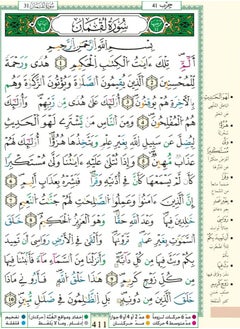 سُورَةُ لُقْمَان
حزب 41
31 سُورَةُ لُقْمَان
سُورَةُ لُقْمَان
بِسۡمِ ٱللَّهِ ٱلرَّحۡمَٰنِ ٱلرَّحِيمِ
الٓمٓ ١ تِلۡكَ ءَايَٰتُ ٱلۡكِتَٰبِ ٱلۡحَكِيمِ ٢ هُدٗى وَرَحۡمَةٗ
لِّلۡمُحۡسِنِينَ ٣ ٱلَّذِينَ يُقِيمُونَ ٱلصَّلَوٰةَ وَيُؤۡتُونَ ٱلزَّكَوٰةَ وَهُم
بِٱلۡأٓخِرَةِ هُمۡ يُوقِنُونَ ٤ أُوْلَٰٓئِكَ عَلَىٰ هُدٗى مِّن رَّبِّهِمۡۖ وَأُوْلَٰٓئِكَ
هُمُ ٱلۡمُفۡلِحُونَ ٥ وَمِنَ ٱلنَّاسِ مَن يَشۡتَرِي لَهۡوَ ٱلۡحَدِيثِ
لِيُضِلَّ عَن سَبِيلِ ٱللَّهِ بِغَيۡرِ عِلۡمٖ وَيَتَّخِذَهَا هُزُوًاۚ أُوْلَٰٓئِكَ لَهُمۡ
عَذَابٞ مُّهِينٞ ٦ وَإِذَا تُتۡلَىٰ عَلَيۡهِ ءَايَٰتُنَا وَلَّىٰ مُسۡتَكۡبِرٗا
كَأَن لَّمۡ يَسۡمَعۡهَا كَأَنَّ فِيٓ أُذُنَيۡهِ وَقۡرٗاۖ فَبَشِّرۡهُ بِعَذَابٍ أَلِيمٍ ٧
إِنَّ ٱلَّذِينَ ءَامَنُواْ وَعَمِلُواْ ٱلصَّٰلِحَٰتِ لَهُمۡ جَنَّٰتُ ٱلنَّعِيمِ ٨
خَٰلِدِينَ فِيهَاۖ وَعۡدَ ٱللَّهِ حَقّٗاۚ وَهُوَ ٱلۡعَزِيزُ ٱلۡحَكِيمُ ٩ خَلَقَ
ٱلسَّمَٰوَٰتِ بِغَيۡرِ عَمَدٖ تَرَوۡنَهَاۖ وَأَلۡقَىٰ فِي ٱلۡأَرۡضِ رَوَٰسِيَ أَن تَمِيدَ
بِكُمۡ وَبَثَّ فِيهَا مِن كُلِّ دَآبَّةٖۚ وَأَنزَلۡنَا مِنَ ٱلسَّمَآءِ مَآءٗ فَأَنۢبَتۡنَا
فِيهَا مِن كُلِّ زَوۡجٖ كَرِيمٍ ١٠ هَٰذَا خَلۡقُ ٱللَّهِ فَأَرُونِي مَاذَا
خَلَقَ ٱلَّذِينَ مِن دُونِهِۦۚ بَلِ ٱلظَّٰلِمُونَ فِي ضَلَٰلٖ مُّبِينٖ ١١
411